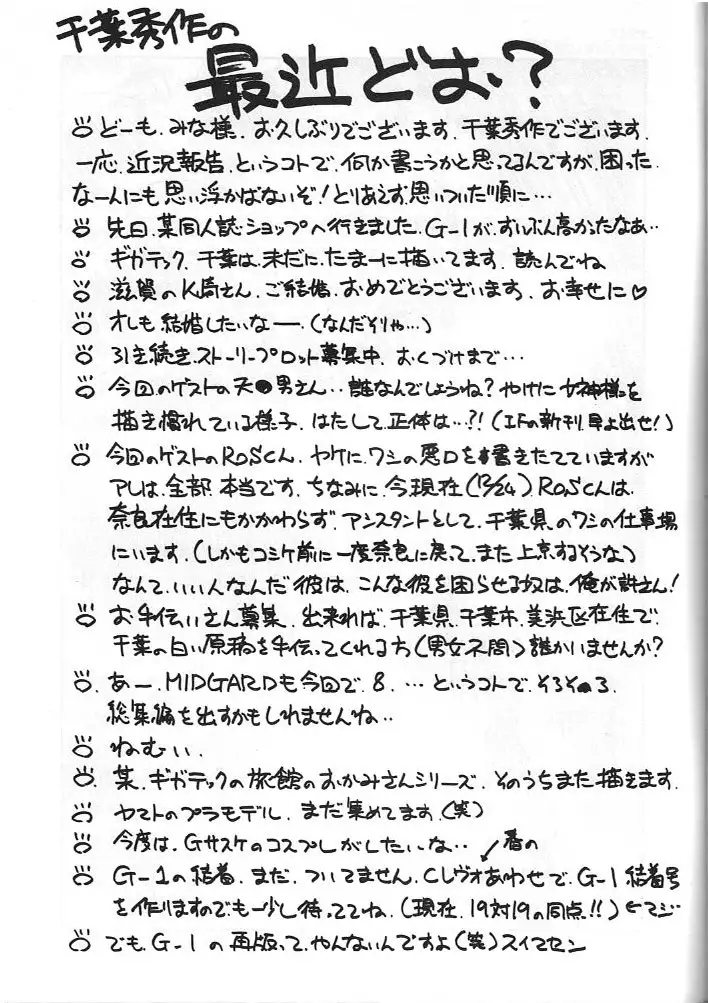 千葉秀作の
最近どお?
どーも.みな様.お久しぶりでございます.千葉秀作でございます.
一応.近況報告.というコトで.何か書こうかと思ってるんですが.困った.
なーんにも思い浮かばないぞ!とりあえず.思いついた順に…
先日.某同人誌ショップへ行きました.G-1が.ずいぶん高かったなあ‥
ギガテック.千葉は.未だに.たまーに描いてます.読んでね
滋賀のK崎さん.ご結婚.おめでとうございます.お幸せに♡
オレも結婚したいなー.(なんだそりゃ…)
引き続き.ストーリープロット募集中.おくづけまで…
今回のゲストの天●男さん‥誰なんでしょうね?やけに女神様を
描き慣れている様子.はたして.正体は…?!(IFの新刊.早よ出せ!)
今回のゲストのROSくん.ヤケに.ワシの悪口を書きたてていますが
アレは.全部.本当です.ちなみに.今.現在(12/24).ROSくんは.
奈良在住にもかかわらず.アシスタントとして.千葉県のワシの仕事場
にいます.(しかもコミケ前に一度奈良に戻って.また上京するそうな)
なんて.いい人なんだ彼は.こんな彼を困らせる奴は.俺が許さん!
お手伝いさん募集.出来れば.千葉県.千葉市.美浜区在住で.
千葉の白い原稿を手伝ってくれる方(男女不問)誰かいませんか?
あー.MIDGARDも今回で.8.…というコトで.そろそろ.
総集編を出すかもしれませんね‥
ねむい.
某.ギガテックの旅館のおかみさんシリーズ.そのうちまた描きます.
ヤマトのプラモデル.まだ集めてます.(笑)
今度は.Gサスケのコスプレがしたいな‥
春の
G-1の結着.まだ.ついてません.Cレヴォあわせで.G-1結着号
を作りますのでも一少し待っててね.(現在.19対19の同点!!)←マジ
でも.G-1の再版って.やんないんですよ(笑)スイマセン